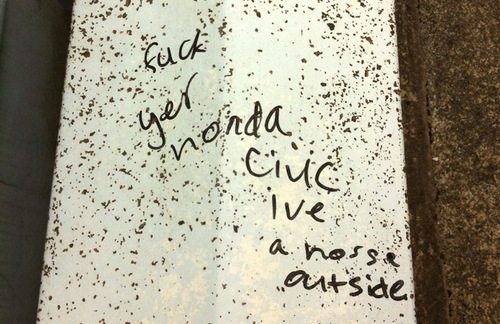 fuck
yer
honda
civic
ive
a horse
outside